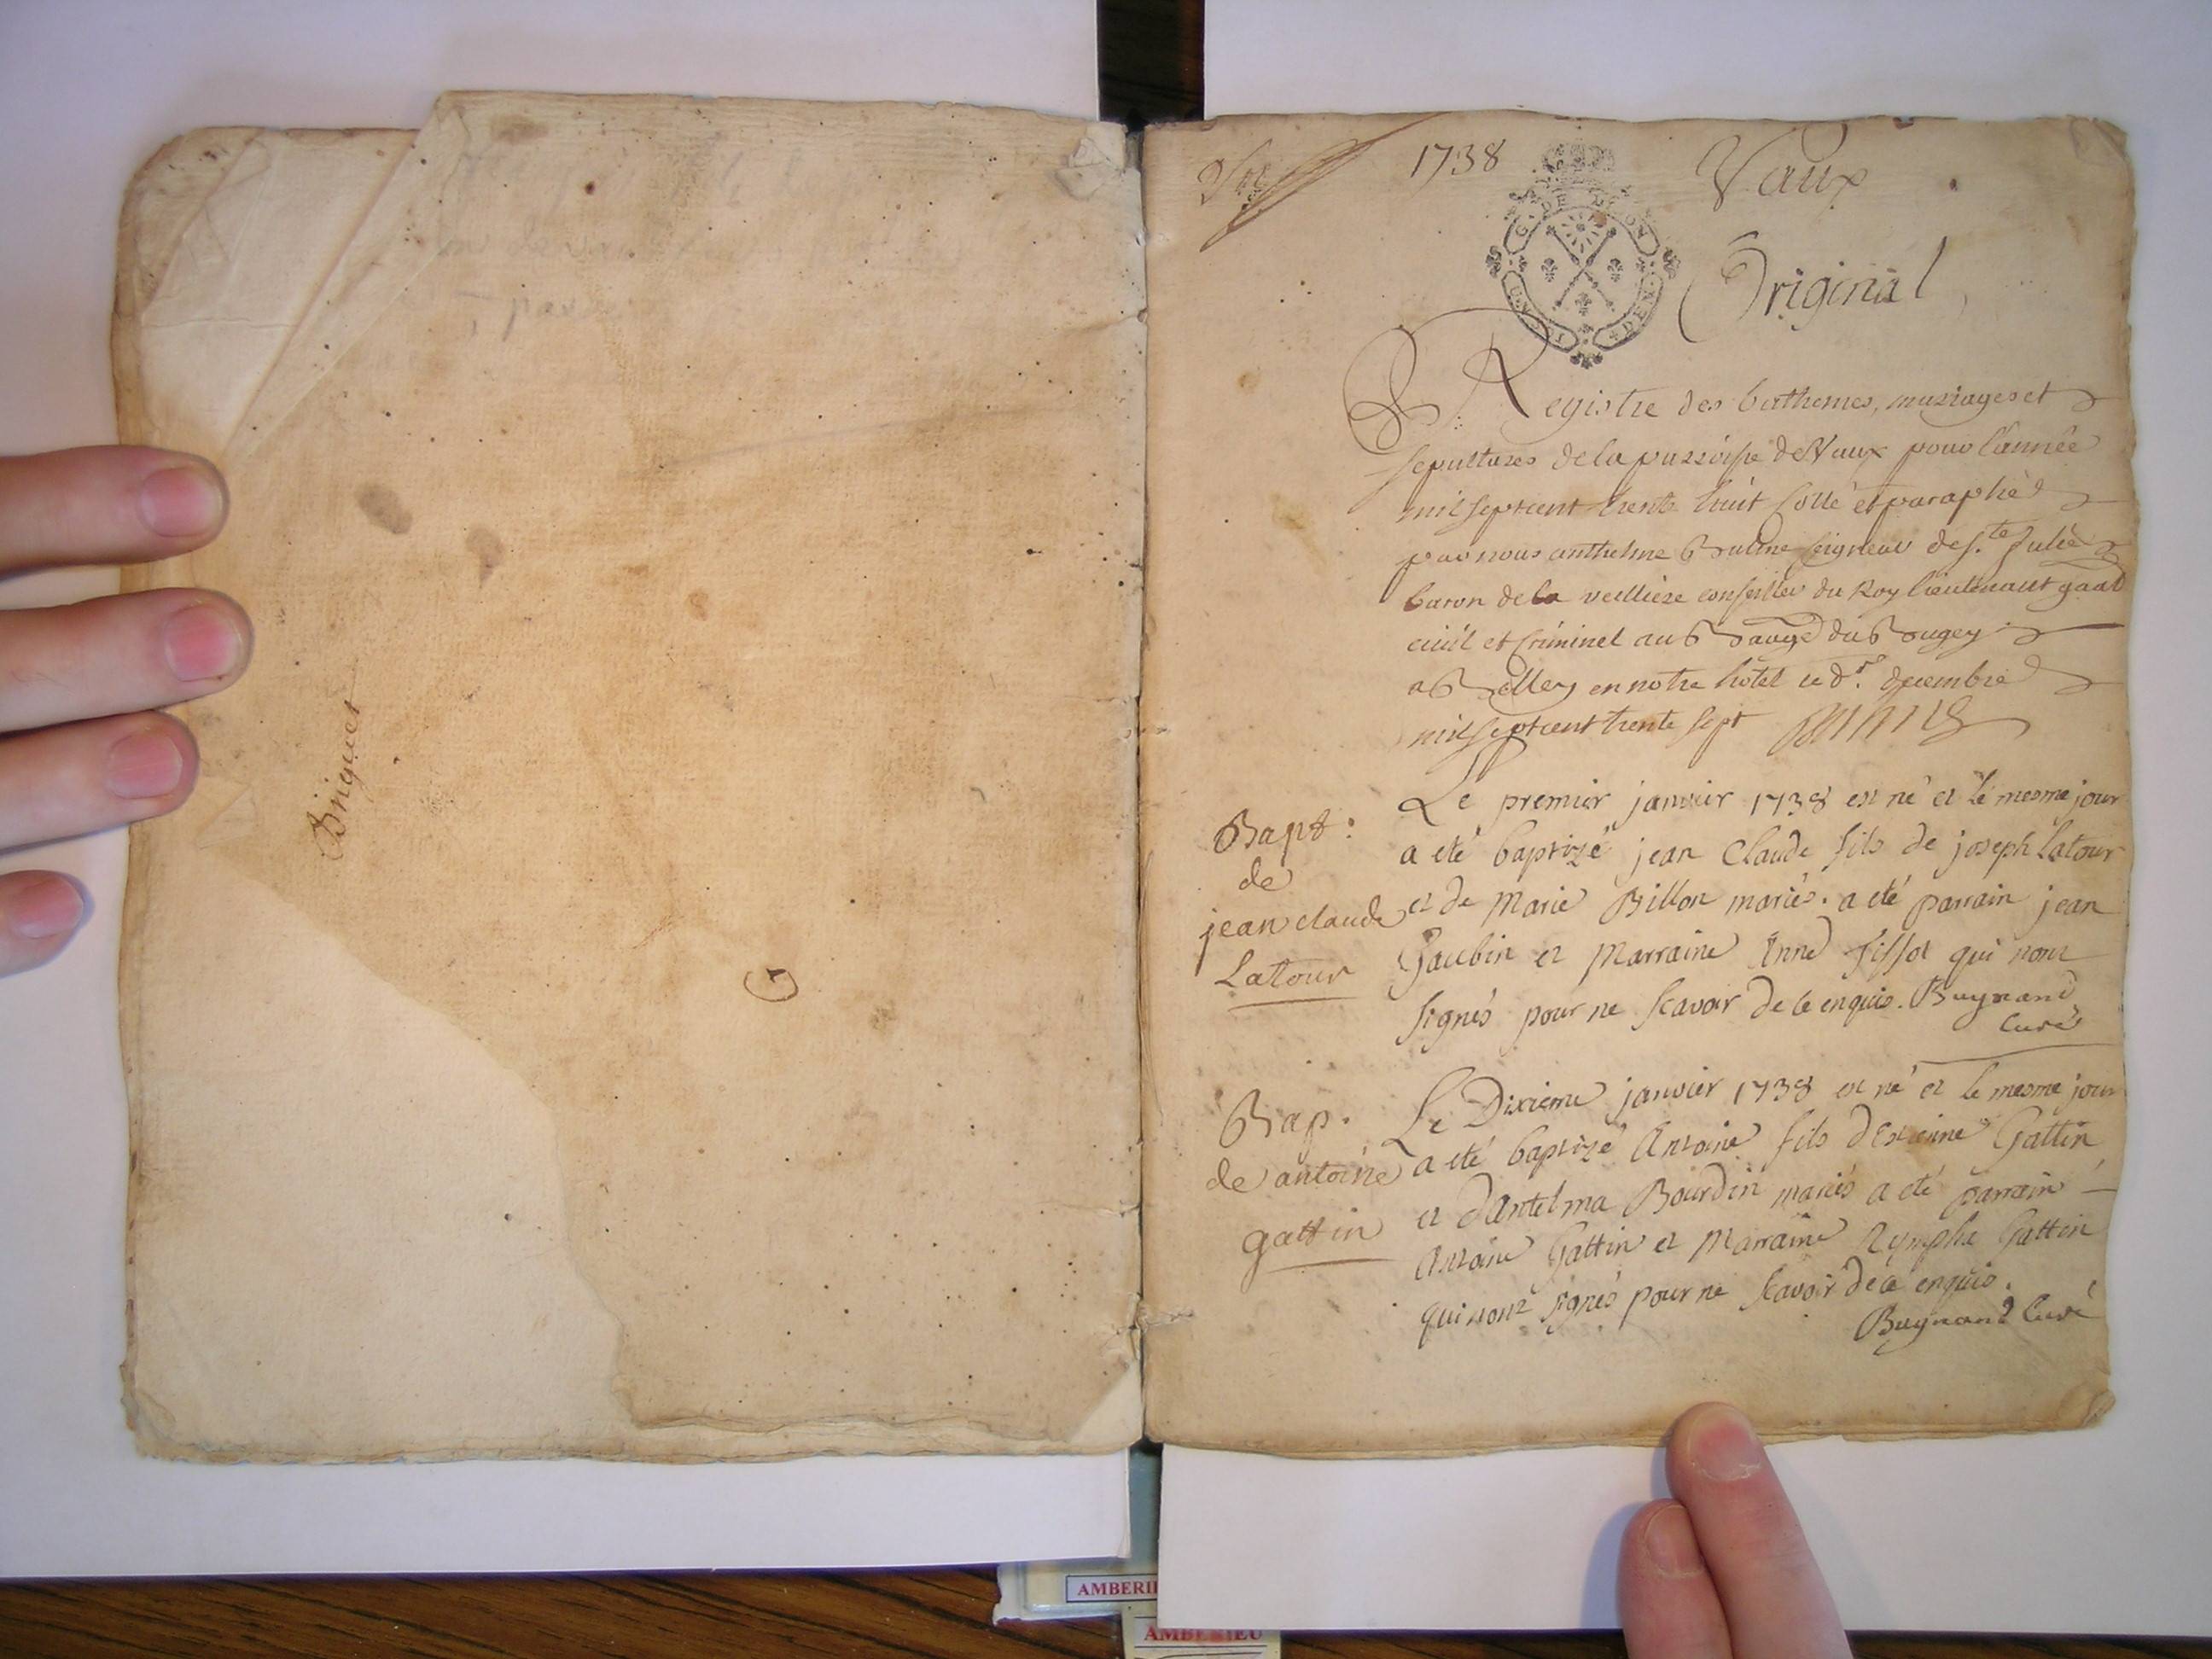 Briguet
1738
Vaux
Original
Registre des bathemes, mariages et
sepultures de la parroisse de Vaux pour l'année
mil sept cent trente huit cotté et paraphé
par nous anthelme Balme seigneur de s.te Julie
baron de la veilliere conseiller du Roy lieutenant gâal
civil et criminel au Bauge du Bugey
a Belley en notre hôtel ce decembre
mil sept cent trente sept
Bapt:
de
jean claude
Latour
Le premier janvier 1738 est né et le mesme jour
a eté baptizé jean Claude fils de joseph Latour
et de Marie Billon mariés. a eté parrain jean
Gaubin et Marraine Anne fissot qui nont
signés pour ne scavoir de ce enquis. Buynand
Curé
Bap.
de antoine
gattin
Le Dixieme janvier 1738 est né et le mesme jour
a eté baptizé Antoine fils d'Estienne Gattin
et d'Antelma Bourdin mariés a eté parrain
Antoine Gattin et Marraine Nymphe Gattin
qui nont signés pour ne scavoir de ce enquis.
Buynand Curé
AMBERIEU